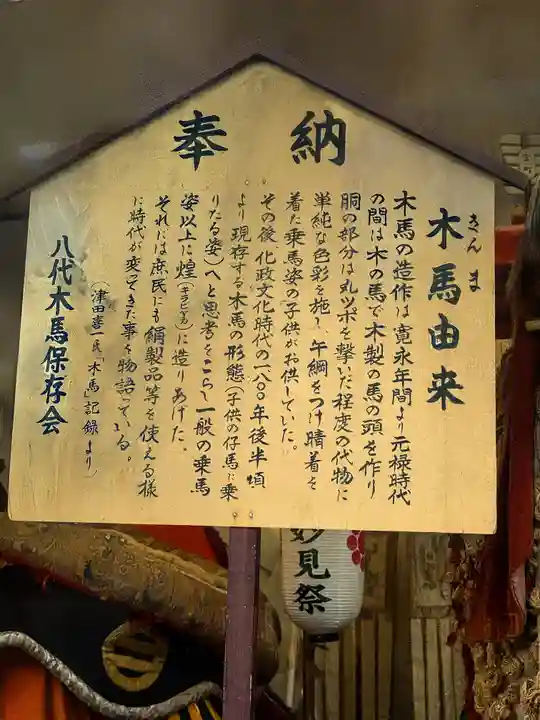 奉納
木馬由来
きんま
木馬の造作は寛永年間より元禄時代
の間は木の馬で木製の馬の頭を作り
胴の部分は丸ツポを撃いだ程度の代物に
単純な色彩を施し、手綱をつけ晴着を
着た乗馬姿の子供がお供していた。
その後化政文化時代の一八〇〇年後半頃
より現存する木馬の形態(子供の仔馬に乗
りたる姿)へと思考をこらし一般の乗馬
姿以上に煌(キラビヤカ)に造りあげた、
それには庶民にも絹製品等を使える様
に時代が変ってきた事を物語っている。
(津田喜一氏「木馬」記録より)
八代木馬保存会
妙見祭